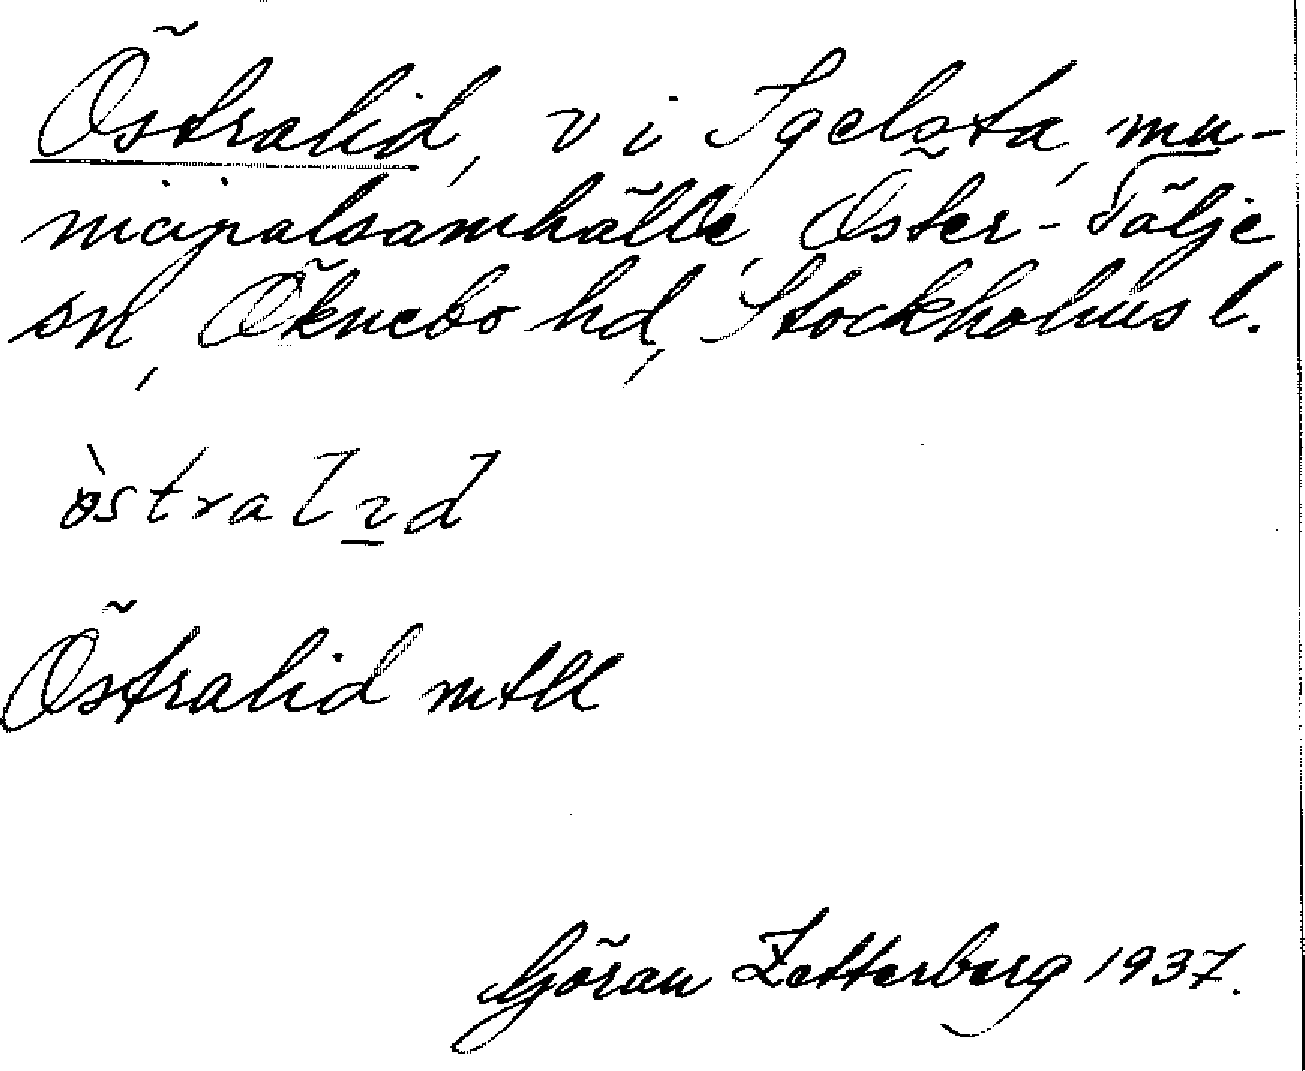 Östralid, v i Igelsta, mu-
nicipalsamhälle, Öster-Tälje
sn, Öknebo hd, Stockholms l.
östralid
Östralid mtll
Göran Zetterberg 1937.